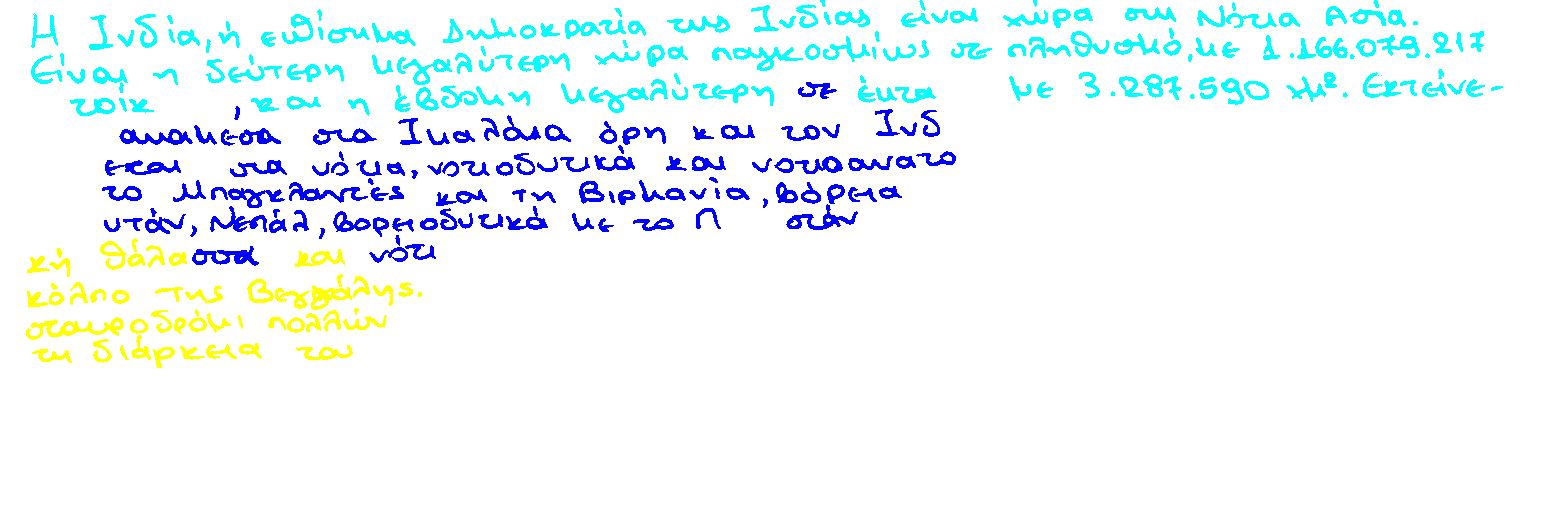 Η Ινδία, ή επίσημα Δημοκρατία της Ινδίας είναι χώρα στη Νότια Ασία.
Είναι η δεύτερη μεγαλύτερη χώρα παγκοσμίως σε πληθυσμό, με 1.166.079.217
τοίκ , και η έβδομη μεγαλύτερη σε έκτα με 3.287.590 χμ². Εκτείνε-
αναμεσα στα Ιμαλάια όρη και τον Ινδ
εται στα νότια, νοτιοδυτικά και νοτιοανατο
το Μπαγκλαντές και τη Βιρμανία, βόρεια
υτάν, Νεπάλ, βορειοδυτικά με το Π στάν
κή θάλασσα και νότι
κόλπο της Βεγγάλης.
σταυροδρόμι πολλών
τη διάρκεια του